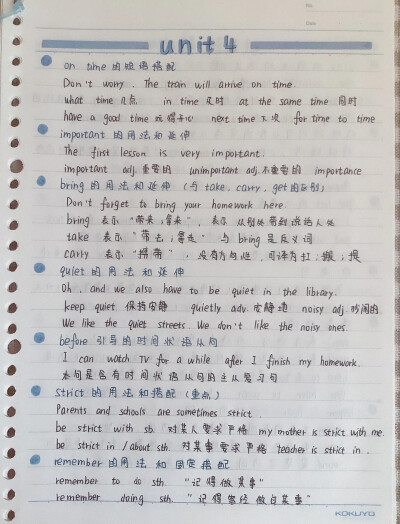 unit 4
on time 的短语搭配
Don't worry. The train will arrive on time.
what time 几点 in time 及时 at the same time 同时
have a good time 玩得开心 next time 下次 for time to time
important 的用法和延伸
The first lesson is very important.
important adj. 重要的 unimportant adj. 不重要的 importance
bring 的用法和延伸 (与 take. carry. get 的区别)
Don't forget to bring your homework here.
bring 表示 "带来;拿来", 表示从别处带到说话人处
take 表示 "带去;拿走" 与 bring 是反义词
carry 表示 "携带", 没有方向性, 可译为扛;搬;提
quiet 的用法和延伸
Oh, and we also have to be quiet in the library.
keep quiet 保持安静 quietly adv. 安静地 noisy adj. 吵闹的
We like the quiet streets. We don't like the noisy ones.
before 引导的时间状语从句
I can watch TV for a while after I finish my homework.
本句是含有时间状语从句的主从复习句
strict 的用法和搭配 (重点)
Parents and schools are sometimes strict.
be strict with sb. 对某人要求严格 my mother is strict with me.
be strict in / about sth. 对某事要求严格 teacher is strict in.
remember 的用法和固定搭配
remember to do sth. "记得做某事"
remember doing sth. "记得曾经做过某事"
KOKUYO